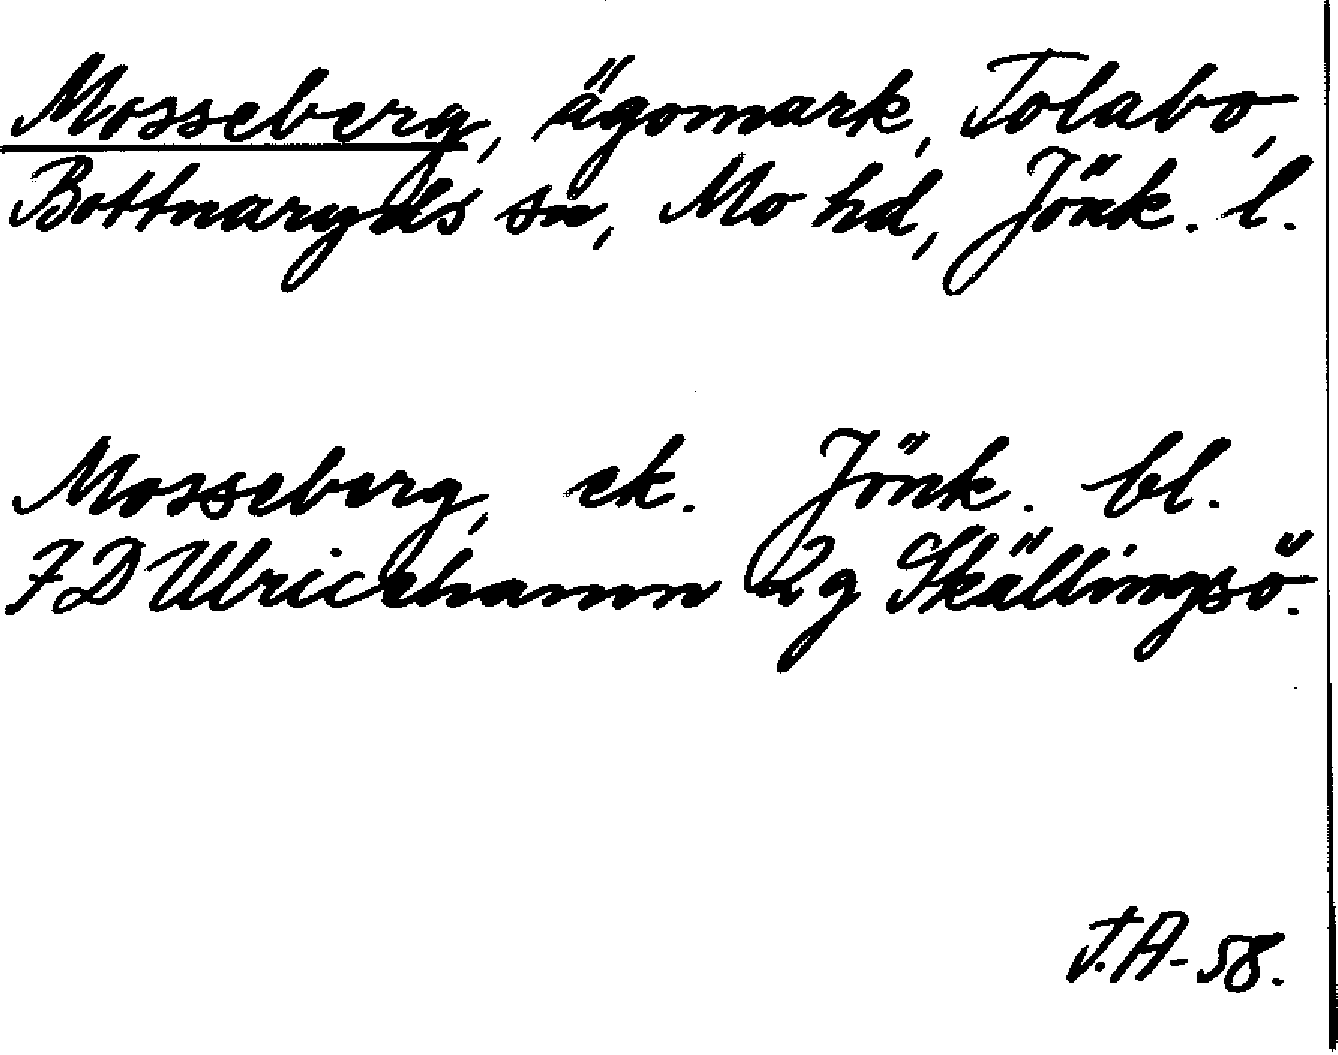 Mosseberg, ägomark, Tolabo,
Bottnaryds sn, Mo hd, Jönk. l.
Mosseberg, ek. Jönk. bl.
7D Ulricehamn 2g Skällingsö.
T.A-58.